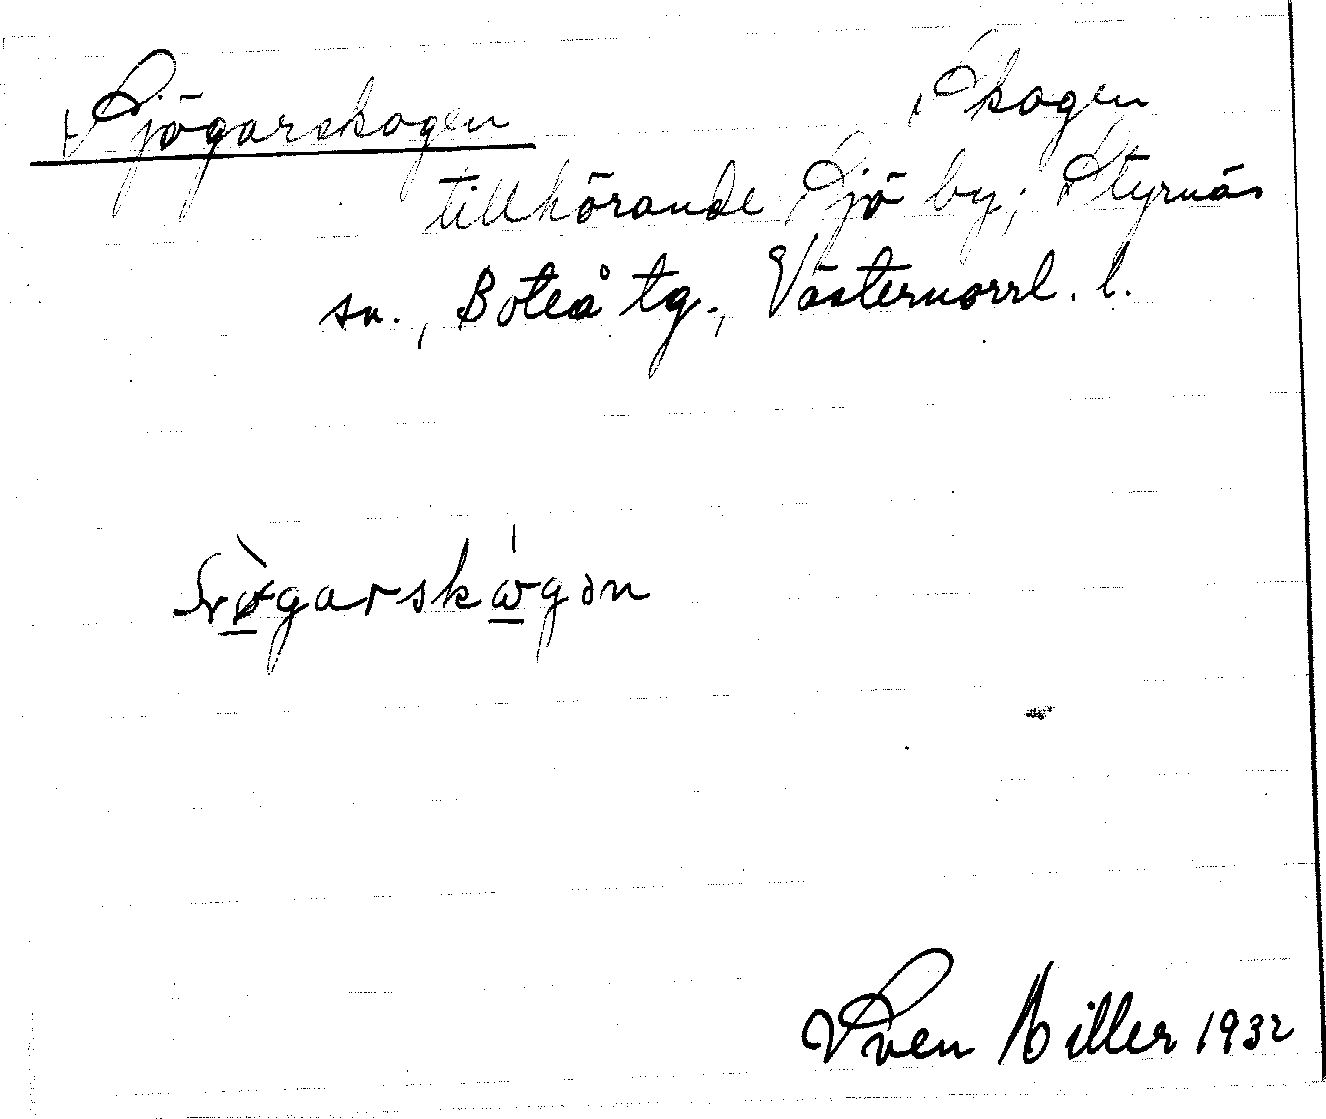 Sjögarskogen Skogen
tillhörande Sjö by, Styrnäs
sn., Boteå tg., Västernorrl. l.
garskògən
Sven Hiller 1932